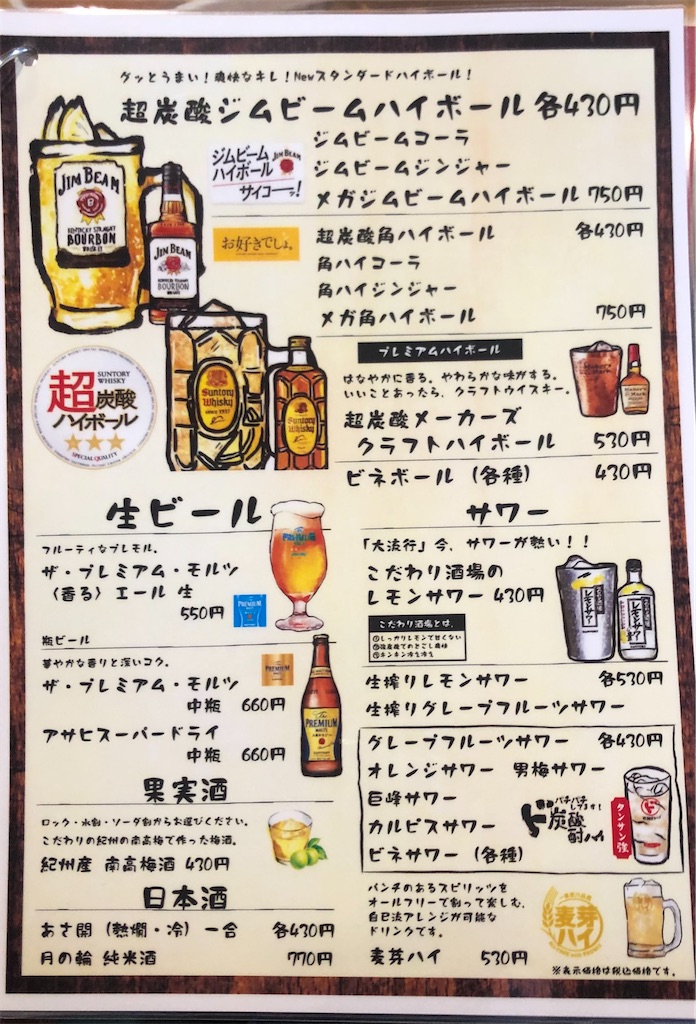 グッとうまい!爽快なキレ!Newスタンダードハイボール!
超炭酸ジムビームハイボール 各430円
ジムビームコーラ
ジムビームジンジャー
メガジムビームハイボール 750円
ジムビーム
ハイボール
サイコーーッ!
JIM BEAM
JIM BEAM
KENTUCKY STRAIGHT
BOURBON
JIM BEAM
BOURBON
お好きでしょ。
超炭酸角ハイボール 各430円
角ハイコーラ
角ハイジンジャー
メガ角ハイボール 750円
SUNTORY
WHISKY
超炭酸
ハイボール
SPECIAL QUALITY
Suntory
Whisky
since 1937
Suntory
Whisky
プレミアムハイボール
はなやかに香る。やわらかな味がする。
いいことあったら、クラフトウイスキー。
超炭酸メーカーズ
クラフトハイボール 530円
ビネボール(各種) 430円
生ビール
フルーティなプレモル。
ザ・プレミアム・モルツ
〈香る〉エール 生
550円
瓶ビール
華やかな香りと深いコク。
ザ・プレミアム・モルツ
中瓶 660円
アサヒスーパードライ
中瓶 660円
The
PREMIUM
MALT'S
果実酒
ロック・水割・ソーダ割からお選びください。
こだわりの紀州の南高梅で作った梅酒。
紀州産 南高梅酒 430円
日本酒
あさ開(熱燗・冷)一合 各430円
月の輪 純米酒 770円
サワー
「大流行」今、サワーが熱い!!
こだわり酒場の
レモンサワー 430円
こだわり酒場とは、
①しっかりレモンで甘くない
②強炭酸でのどごし爽快
③キンキン冷え冷え
レモンサワー
レモンサワー
生搾りレモンサワー 各530円
生搾りグレープフルーツサワー
グレープフルーツサワー 各430円
オレンジサワー 男梅サワー
巨峰サワー
カルピスサワー
ビネサワー(各種)
バチバチ
してます!
ド炭酸
酎ハイ
タンサン強
パンチのあるスピリッツを
オールフリーで割って楽しむ、
自己流アレンジが可能な
ドリンクです。
麦芽ハイ 530円
麦芽
ハイ
※表示価格は税込価格です。